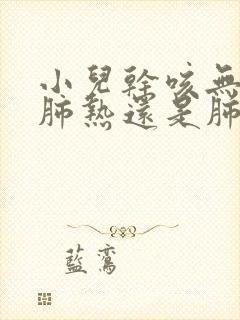 小兒幹咳無
肺熱還是肺
藍鸞